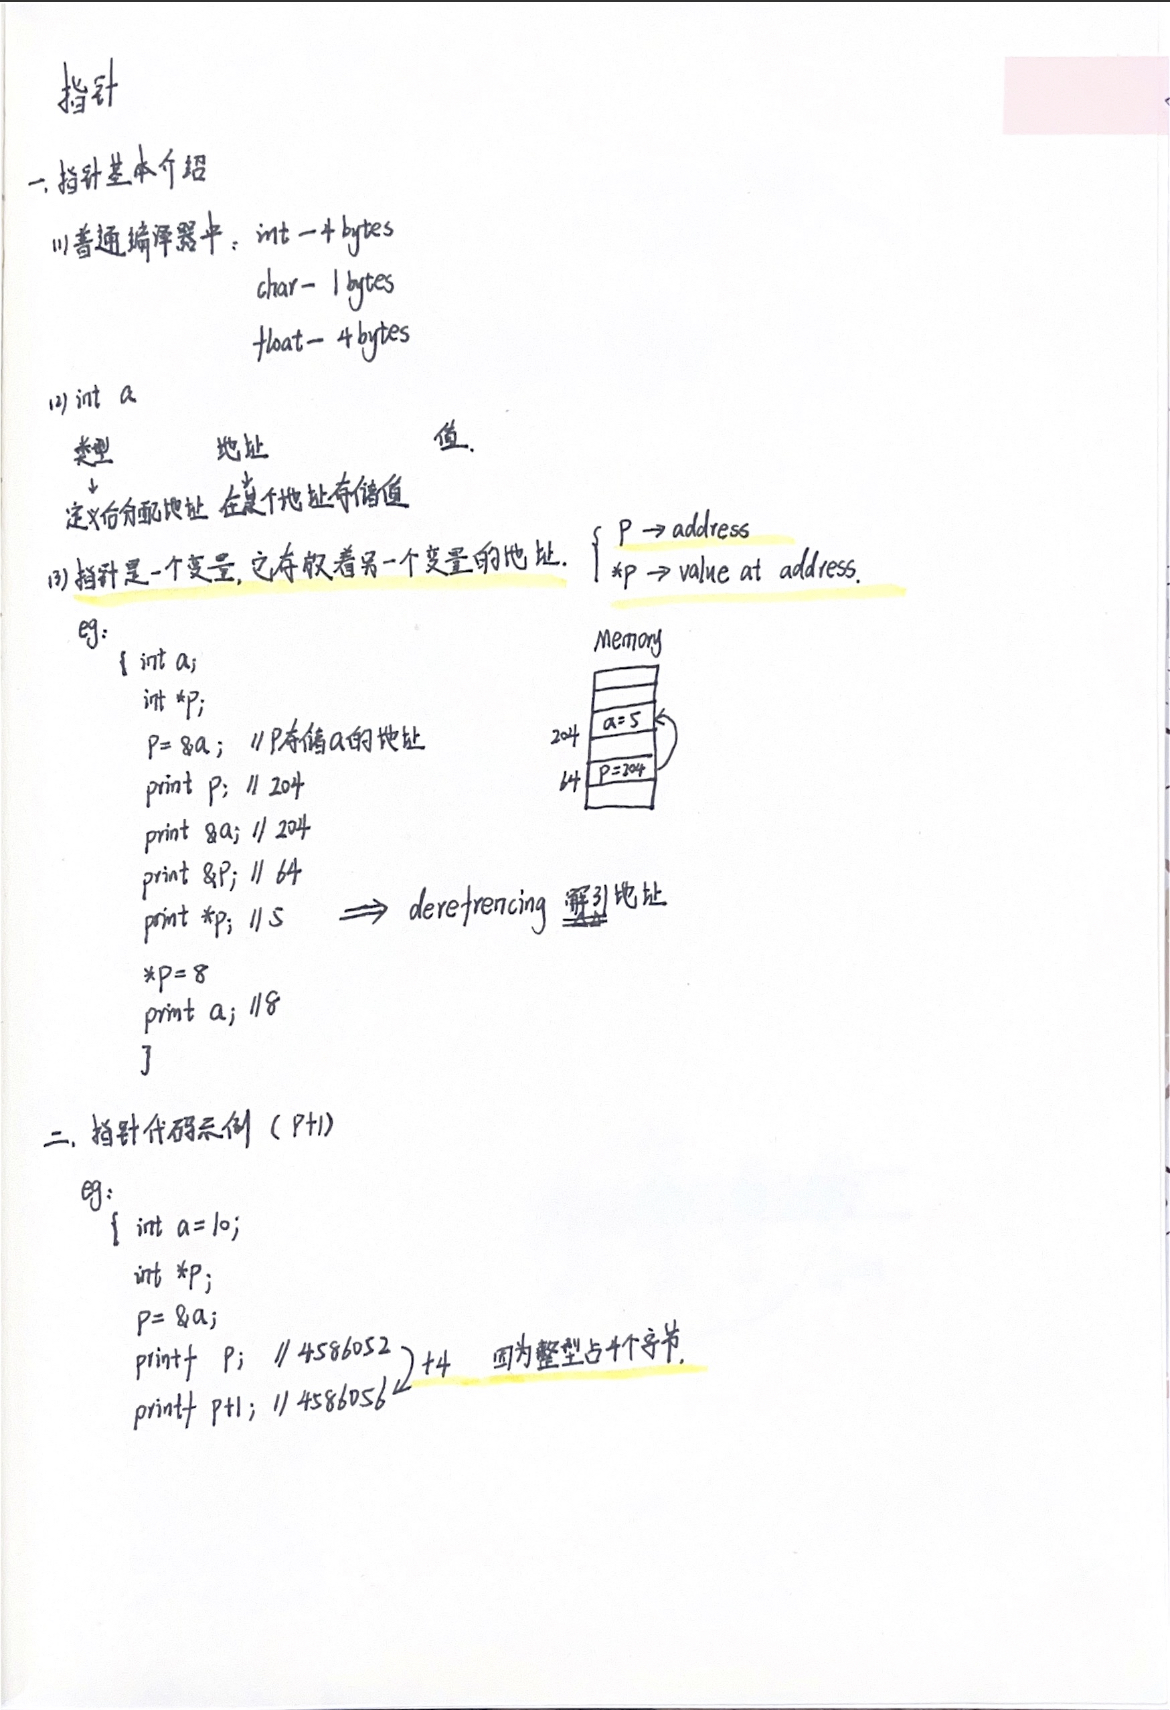 指针
一. 指针基本介绍
(1) 普通编译器中: int — 4 bytes
char — 1 bytes
float — 4 bytes
(2) int a
类型 地址 值.
↓ ↓
定义后分配地址 在某个地址存储值
(3) 指针是一个变量, 它存放着另一个变量的地址. { P → address
*p → value at address.
eg:
{ int a;
int *p;
P = &a; // P存储a的地址
print p; // 204
print &a; // 204
print &P; // 64
print *p; // 5 ⟹ derefrencing 解引地址
*p = 8
print a; // 8
}
Memory
204 a=5
64 P=204
二. 指针代码示例 (P+1)
eg:
{ int a = 10;
int *p;
p = &a;
printf p; // 4586052
printf p+1; // 4586056 +4 因为整型占4个字节.